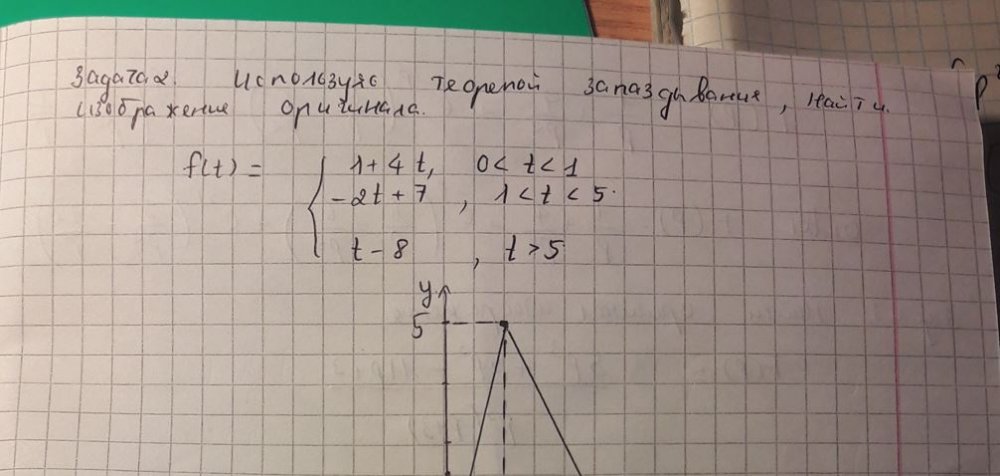 Задача 2. Используя теоремой запаздывания, найти
изображение оригинала.
f(t) = { 1 + 4t, 0 < t < 1
-2t + 7, 1 < t < 5
t - 8, t > 5
y
5